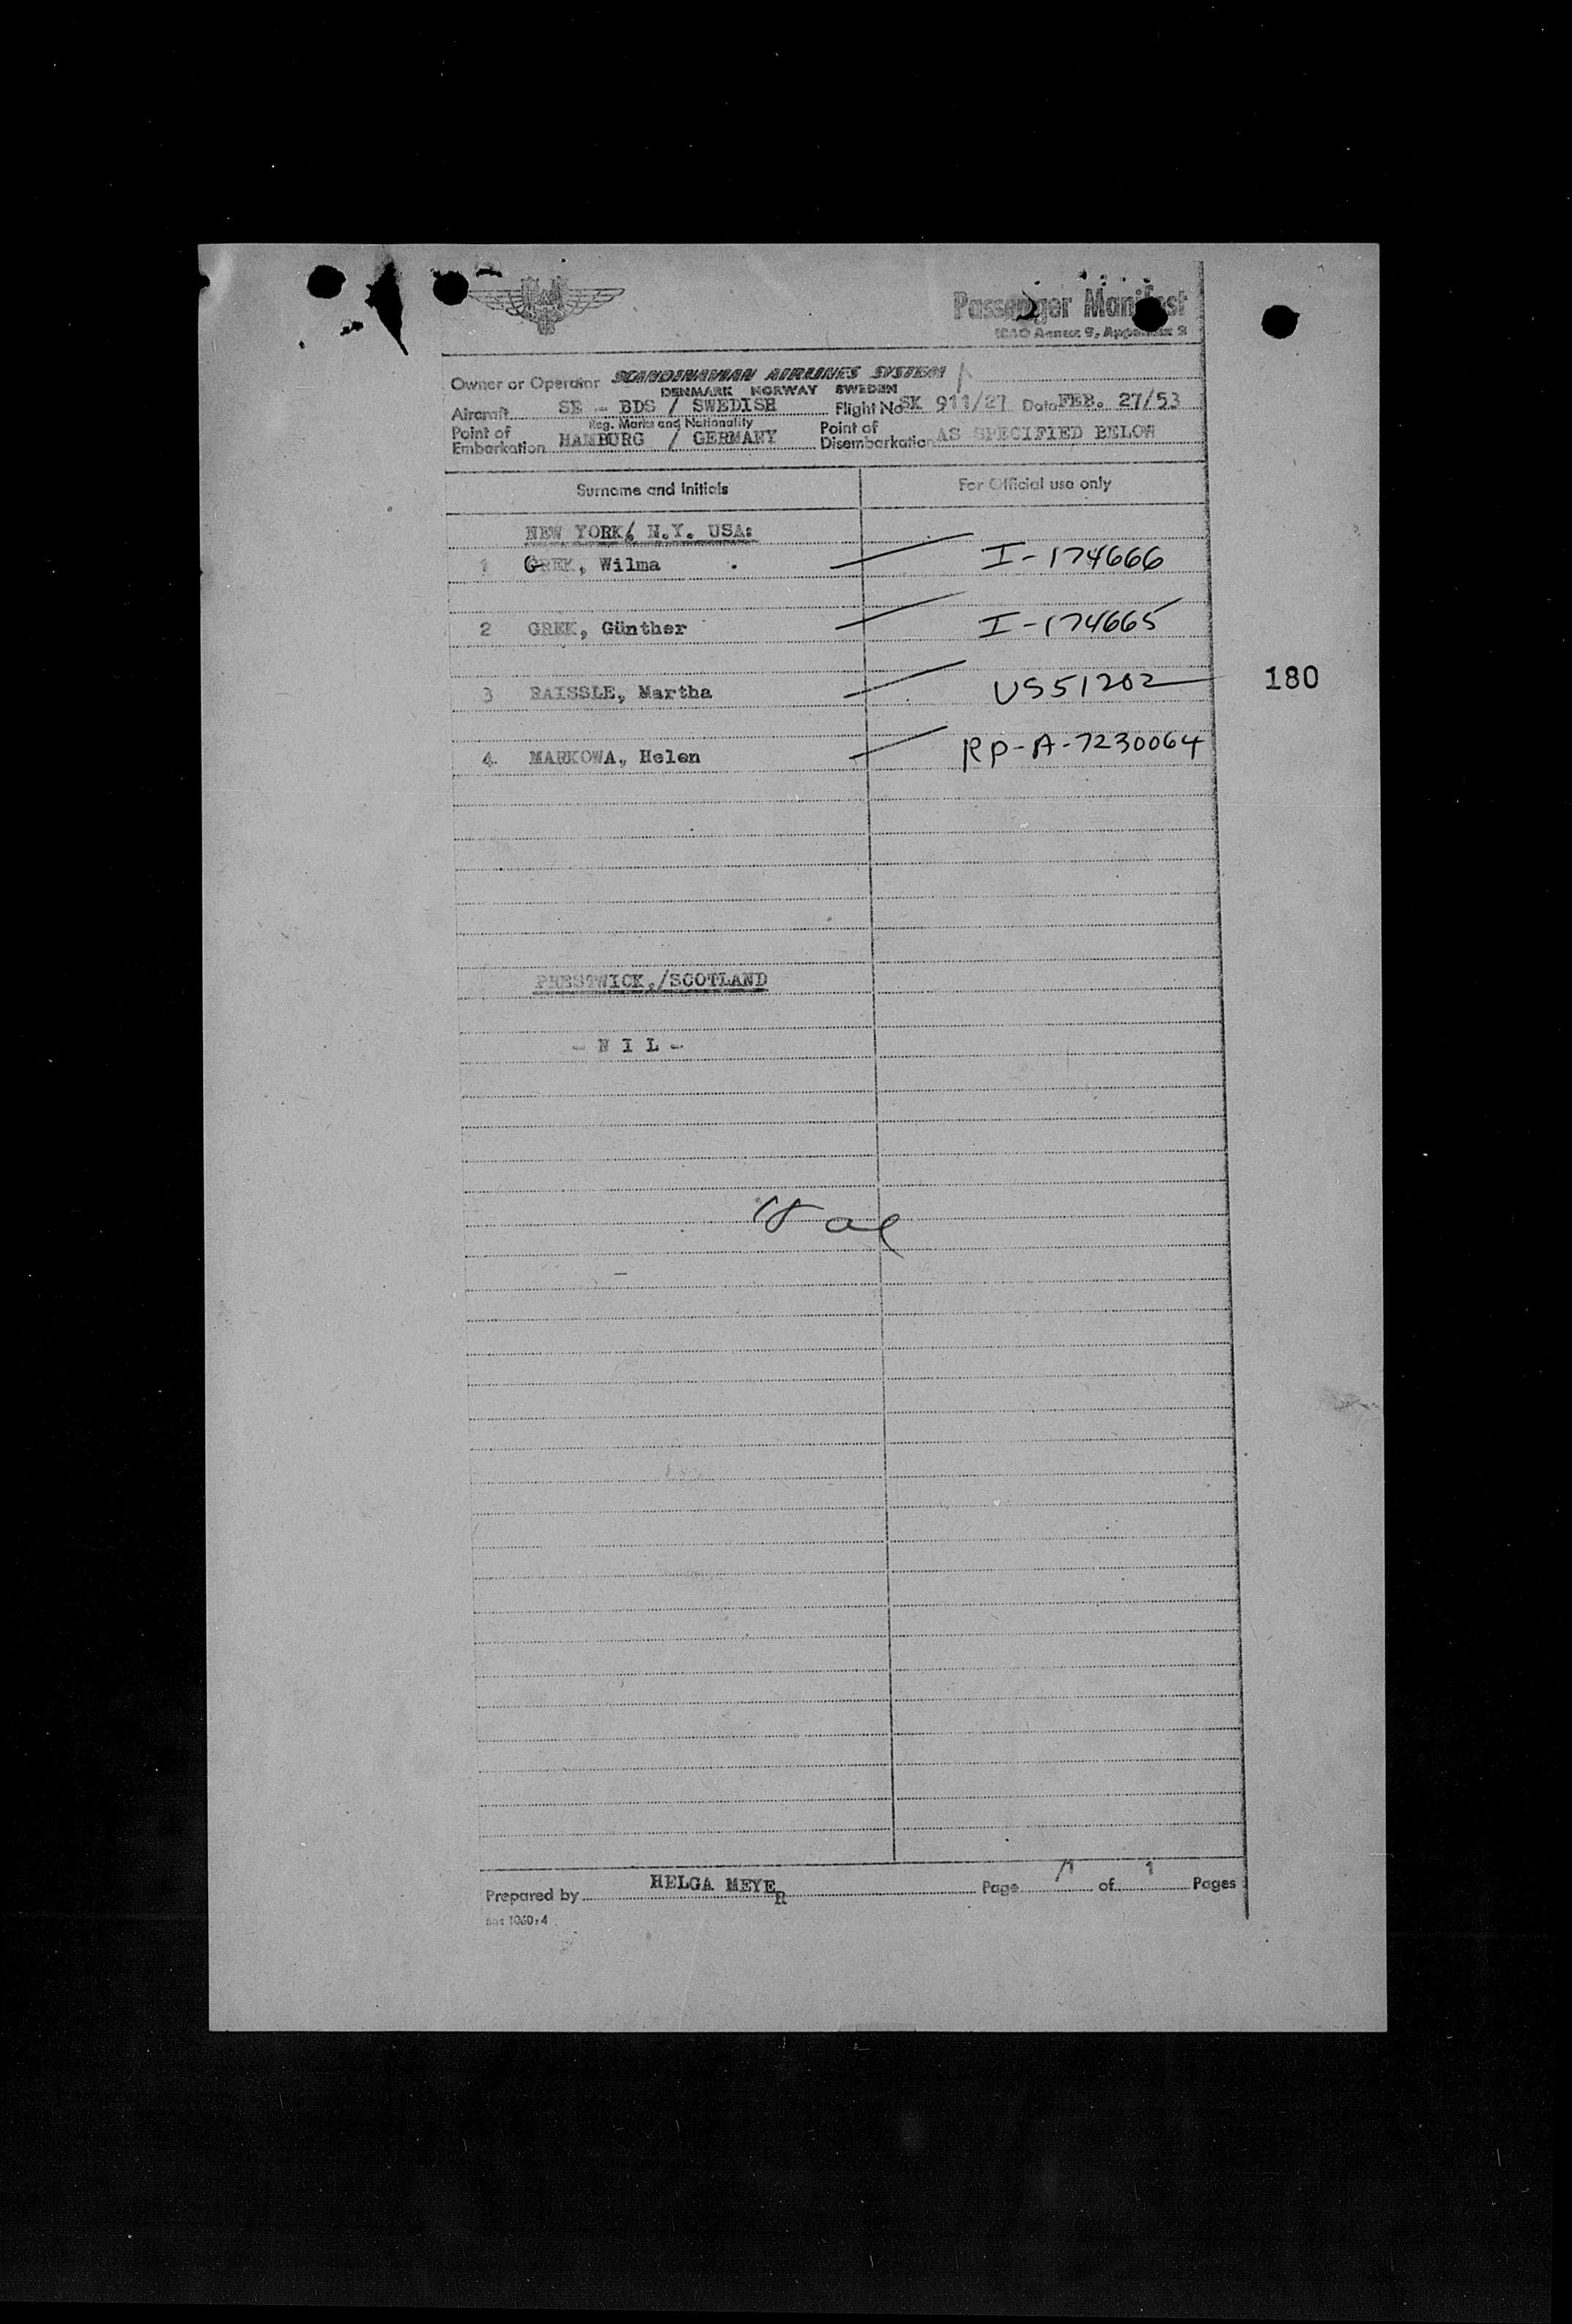 Passenger Manifest
ICAO Annex 9, Appendix 2
Owner or Operator SCANDINAVIAN AIRLINES SYSTEM
DENMARK NORWAY SWEDEN
Aircraft SE - BDS / SWEDISH Flight No SK 911/27 Date FEB. 27/53
Reg. Marks and Nationality
Point of Embarkation HAMBURG / GERMANY Point of Disembarkation AS SPECIFIED BELOW
Surname and Initials For Official use only
NEW YORK, N.Y. USA:
1 GREK, Wilma I-174666
2 GREK, Günther I-174665
3 RAISSLE, Martha US51202
180
4 MARKOWA, Helen RP-A-7230064
PRESTWICK,/SCOTLAND
- N I L -
Prepared by HELGA MEYER Page /1 of 1 Pages
1060:4